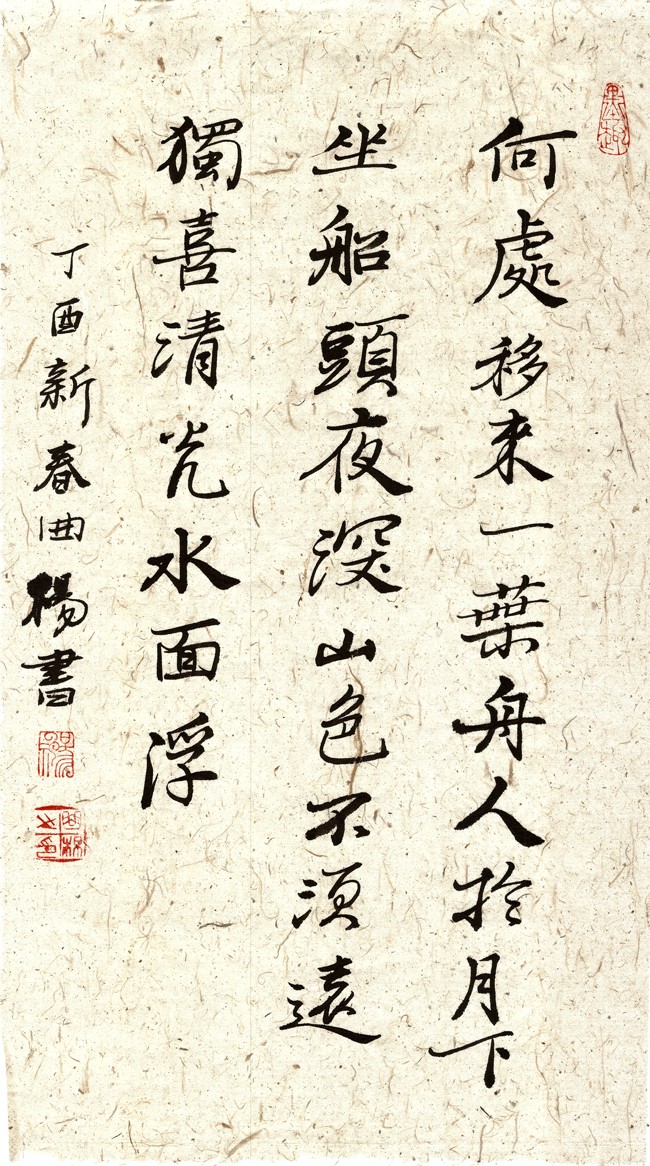 何處移來一葉舟人於月下
坐船頭夜深山色不須遠
獨喜清光水面浮
丁酉新春曲楊書